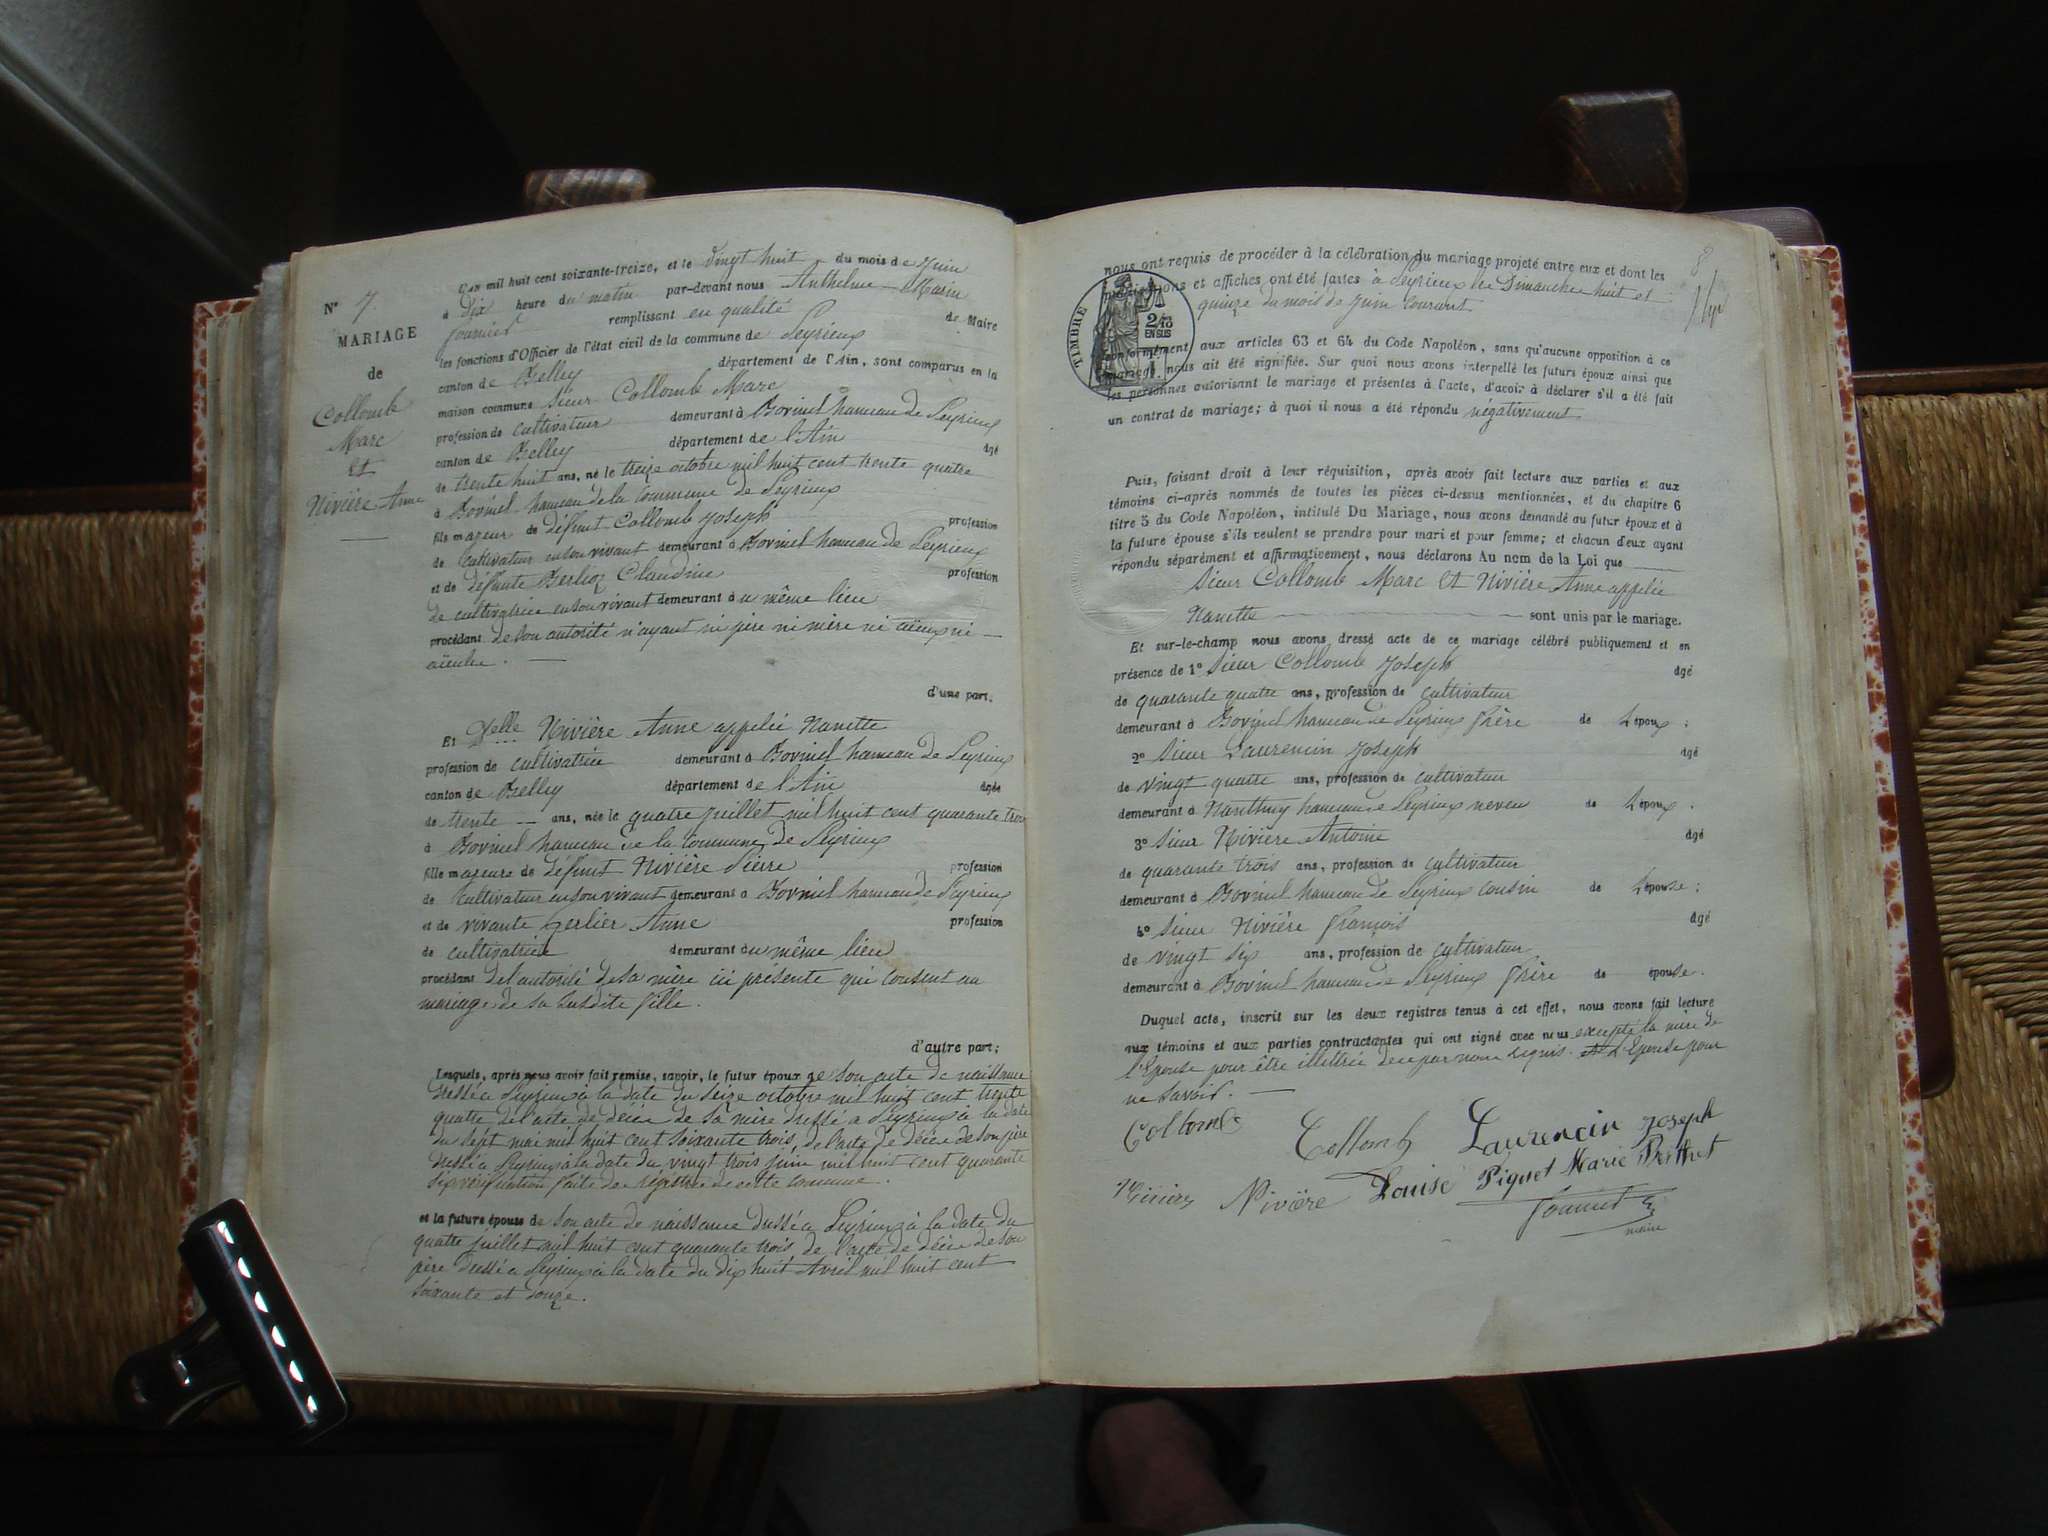 N° 7
MARIAGE
de
Collomb
Marc
et
Nivière Anne
L'an mil huit cent soixante-treize, et le vingt huit du mois de Juin
à dix heure du matin par-devant nous Anthelme Marin
fournier remplissant en qualité de Maire
les fonctions d'Officier de l'état civil de la commune de Peyrieux
canton de Belley département de l'Ain, sont comparus en la
maison commune Sieur Collomb Marc
profession de cultivateur demeurant à Bovinel hameau de Peyrieux
canton de Belley département de l'Ain âgé
de trente huit ans, né le treize octobre mil huit cent trente quatre
à Bovinel hameau de la Commune de Peyrieux
fils majeur de défunt Collomb Joseph profession
de Cultivateur en son vivant demeurant à Bovinel hameau de Peyrieux
et de défunte Berlioz Claudine profession
de cultivatrice en son vivant demeurant au même lieu
procédant de son autorité n'ayant ni père ni mère ni aïeux ni
aïeules.
d'une part.
Et Delle Nivière Anne appelée Nanette
profession de cultivatrice demeurant à Bovinel hameau de Peyrieux
canton de Belley département de l'Ain âgée
de trente ans, née le quatre juillet mil huit cent quarante trois
à Bovinel hameau de la Commune de Peyrieux
fille majeure de défunt Nivière Pierre profession
de Cultivateur en son vivant demeurant à Bovinel hameau de Peyrieux
et de vivante Gerlier Anne profession
de cultivatrice demeurant au même lieu
procédant de l'autorité de sa mère ici présente qui consent au
mariage de sa susdite fille.
d'autre part;
Lesquels, après nous avoir fait remise, savoir, le futur époux de son acte de naissance
dressé à Peyrieux à la date du seize octobre mil huit cent trente
quatre de l'acte de décès de sa mère dressé à Peyrieux à la date
du sept mai mil huit cent soixante trois, de l'acte de décès de son père
dressé à Peyrieux à la date du vingt trois juin mil huit cent quarante
six vérification faite des régistres de cette commune.
et la future épouse de son acte de naissance dressé à Peyrieux à la date du
quatre juillet mil huit cent quarante trois, de l'acte de décès de son
père dressé à Peyrieux à la date du dix huit Avril mil huit cent
soixante et douze.
8
nous ont requis de procéder à la célébration du mariage projeté entre eux et dont les
publications et affiches ont été faites à Peyrieux les Dimanches huit et
quinze du mois de Juin courant.
TIMBRE
EN SUS
Conformément aux articles 63 et 64 du Code Napoléon, sans qu'aucune opposition à ce
mariage nous ait été signifiée. Sur quoi nous avons interpellé les futurs époux ainsi que
les personnes autorisant le mariage et présentes à l'acte, d'avoir à déclarer s'il a été fait
un contrat de mariage; à quoi il nous a été répondu négativement.
Puis, faisant droit à leur réquisition, après avoir fait lecture aux parties et aux
témoins ci-après nommés de toutes les pièces ci-dessus mentionnées, et du chapitre 6
titre 5 du Code Napoléon, intitulé Du Mariage, nous avons demandé au futur époux et à
la future épouse s'ils veulent se prendre pour mari et pour femme; et chacun d'eux ayant
répondu séparément et affirmativement, nous déclarons Au nom de la Loi que
Sieur Collomb Marc et Nivière Anne appelée
Nanette sont unis par le mariage.
Et sur-le-champ nous avons dressé acte de ce mariage célébré publiquement et en
présence de 1° Sieur Collomb Joseph âgé
de quarante quatre ans, profession de cultivateur
demeurant à Bovinel hameau de Peyrieux frère de l'époux;
2° Sieur Laurencin Joseph âgé
de vingt quatre ans, profession de cultivateur
demeurant à Nanthuy hameau de Peyrieux neveu de l'époux.
3° Sieur Nivière Antoine âgé
de quarante trois ans, profession de cultivateur
demeurant à Bovinel hameau de Peyrieux cousin de l'épouse;
4° Sieur Nivière François âgé
de vingt six ans, profession de cultivateur
demeurant à Bovinel hameau de Peyrieux frère de épouse.
Duquel acte, inscrit sur les deux registres tenus à cet effet, nous avons fait lecture
aux témoins et aux parties contractantes qui ont signé avec nous excepté la mère de
l'Epouse pour être illettrée de ce par nous requis. et l'Epouse pour
ne savoir.
Collomb Collomb Laurencin Joseph
Nivière Nivière Louise Piquet Marie Berthet
fournier
maire